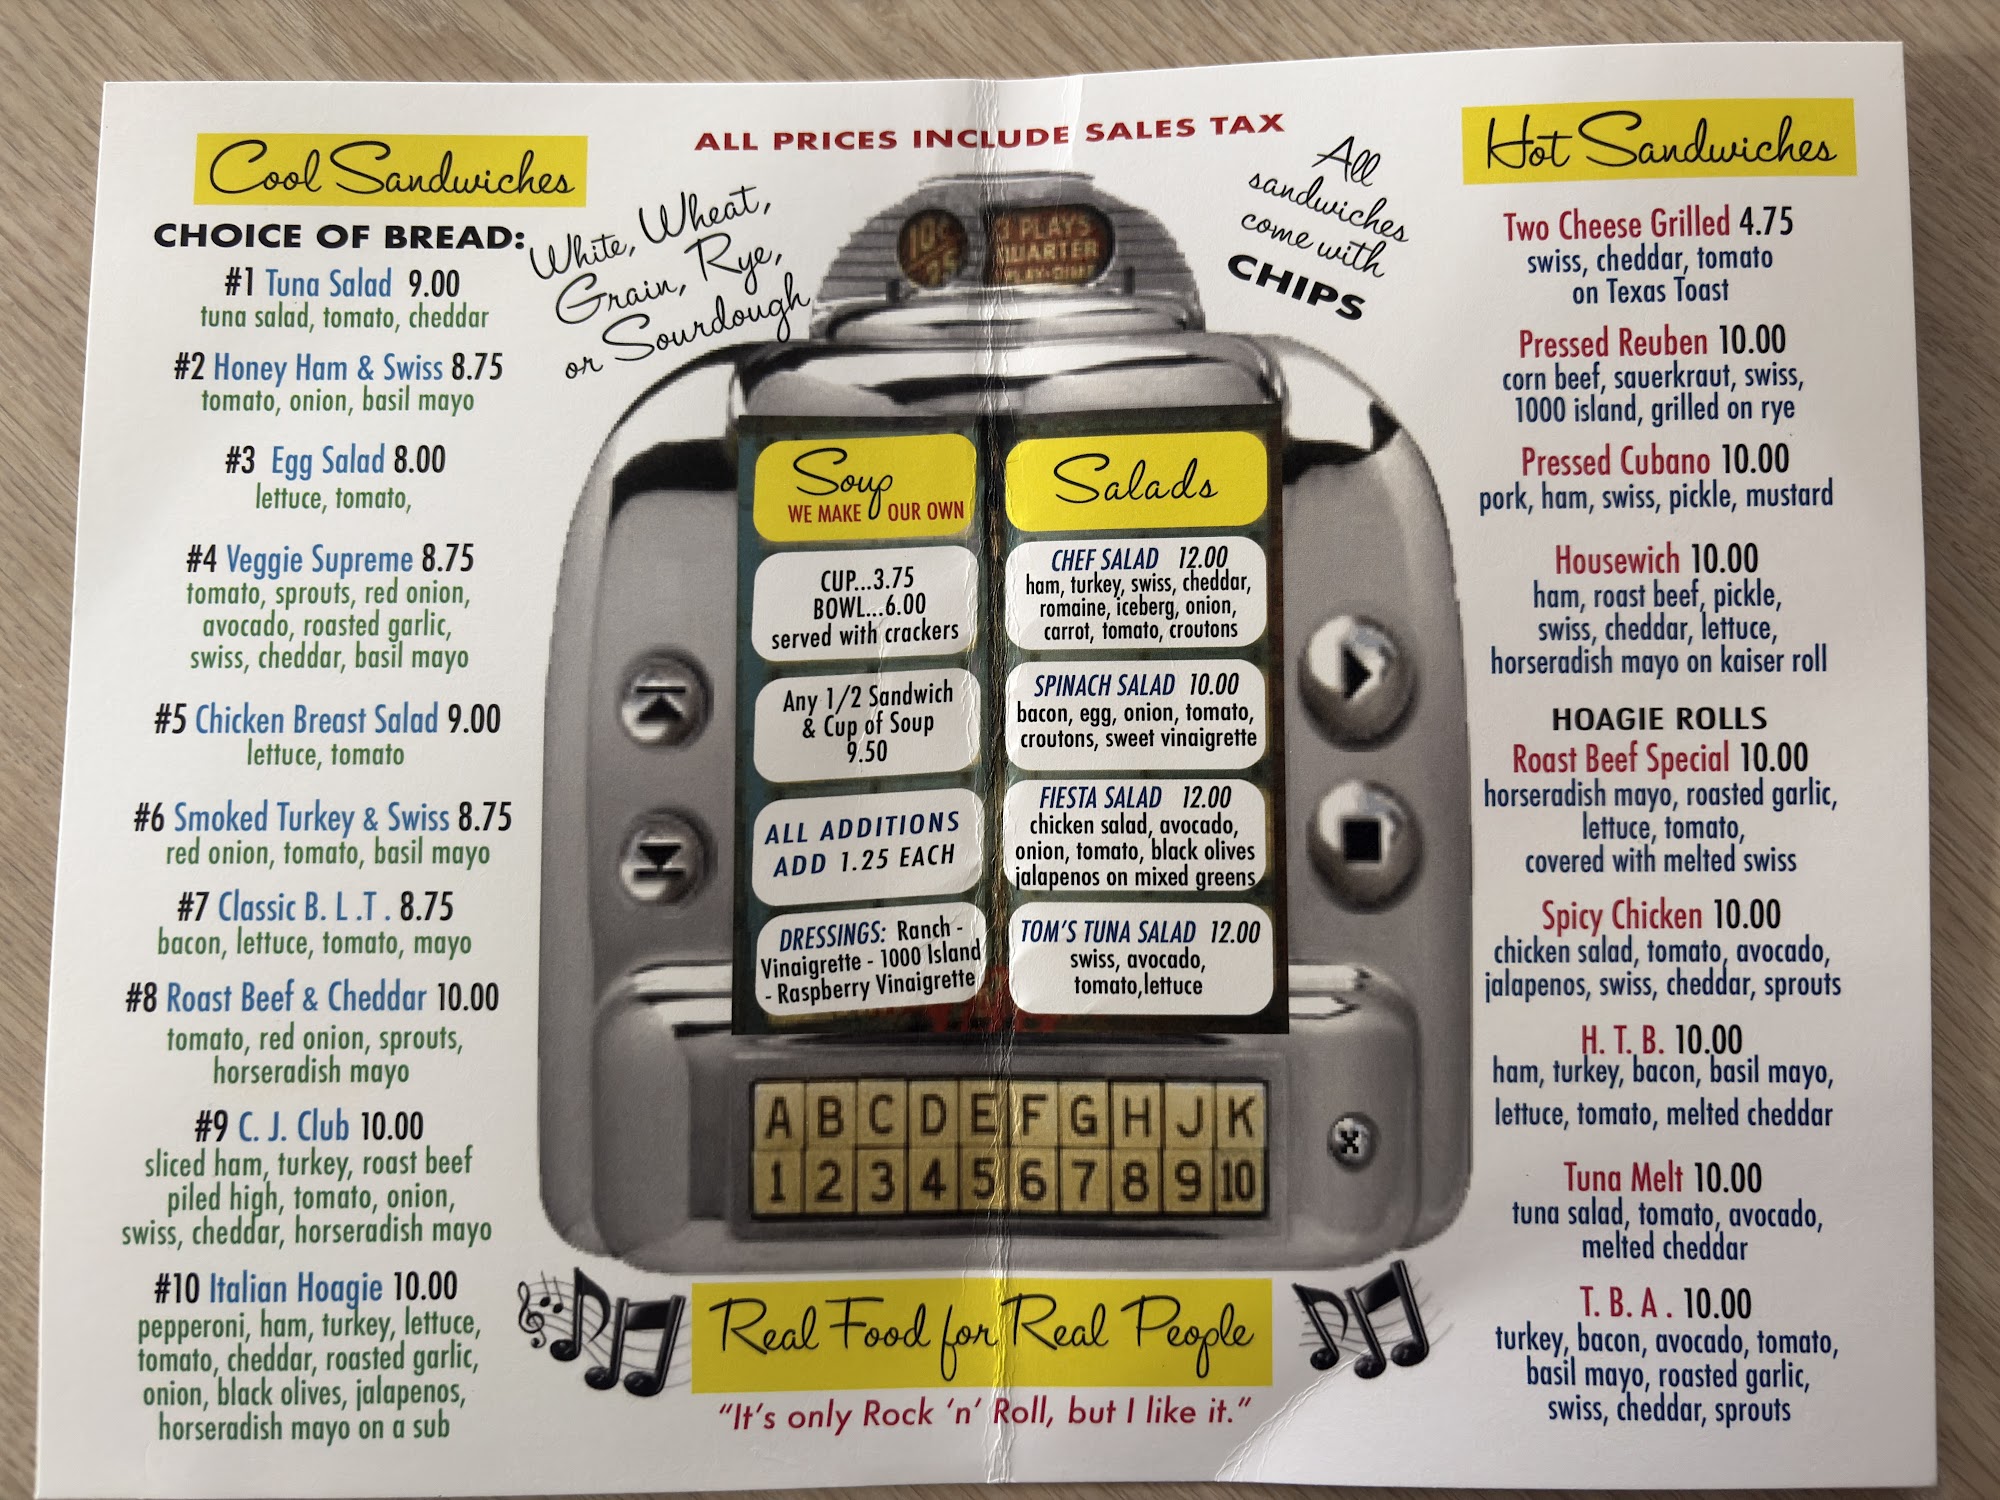 ALL PRICES INCLUDE SALES TAX
Cool Sandwiches
CHOICE OF BREAD:
White, Wheat,
Grain, Rye,
or Sourdough
#1 Tuna Salad 9.00
tuna salad, tomato, cheddar
#2 Honey Ham & Swiss 8.75
tomato, onion, basil mayo
#3 Egg Salad 8.00
lettuce, tomato,
#4 Veggie Supreme 8.75
tomato, sprouts, red onion,
avocado, roasted garlic,
swiss, cheddar, basil mayo
#5 Chicken Breast Salad 9.00
lettuce, tomato
#6 Smoked Turkey & Swiss 8.75
red onion, tomato, basil mayo
#7 Classic B. L .T . 8.75
bacon, lettuce, tomato, mayo
#8 Roast Beef & Cheddar 10.00
tomato, red onion, sprouts,
horseradish mayo
#9 C. J. Club 10.00
sliced ham, turkey, roast beef
piled high, tomato, onion,
swiss, cheddar, horseradish mayo
#10 Italian Hoagie 10.00
pepperoni, ham, turkey, lettuce,
tomato, cheddar, roasted garlic,
onion, black olives, jalapenos,
horseradish mayo on a sub
10¢
25
3 PLAYS
QUARTER
All
sandwiches
come with
CHIPS
Soup
WE MAKE OUR OWN
CUP...3.75
BOWL...6.00
served with crackers
Any 1/2 Sandwich
& Cup of Soup
9.50
ALL ADDITIONS
ADD 1.25 EACH
DRESSINGS: Ranch -
Vinaigrette - 1000 Island
- Raspberry Vinaigrette
Salads
CHEF SALAD 12.00
ham, turkey, swiss, cheddar,
romaine, iceberg, onion,
carrot, tomato, croutons
SPINACH SALAD 10.00
bacon, egg, onion, tomato,
croutons, sweet vinaigrette
FIESTA SALAD 12.00
chicken salad, avocado,
onion, tomato, black olives
jalapenos on mixed greens
TOM'S TUNA SALAD 12.00
swiss, avocado,
tomato,lettuce
A B C D E F G H J K
1 2 3 4 5 6 7 8 9 10
X
Real Food for Real People
"It's only Rock 'n' Roll, but I like it."
Hot Sandwiches
Two Cheese Grilled 4.75
swiss, cheddar, tomato
on Texas Toast
Pressed Reuben 10.00
corn beef, sauerkraut, swiss,
1000 island, grilled on rye
Pressed Cubano 10.00
pork, ham, swiss, pickle, mustard
Housewich 10.00
ham, roast beef, pickle,
swiss, cheddar, lettuce,
horseradish mayo on kaiser roll
HOAGIE ROLLS
Roast Beef Special 10.00
horseradish mayo, roasted garlic,
lettuce, tomato,
covered with melted swiss
Spicy Chicken 10.00
chicken salad, tomato, avocado,
jalapenos, swiss, cheddar, sprouts
H. T. B. 10.00
ham, turkey, bacon, basil mayo,
lettuce, tomato, melted cheddar
Tuna Melt 10.00
tuna salad, tomato, avocado,
melted cheddar
T. B. A . 10.00
turkey, bacon, avocado, tomato,
basil mayo, roasted garlic,
swiss, cheddar, sprouts